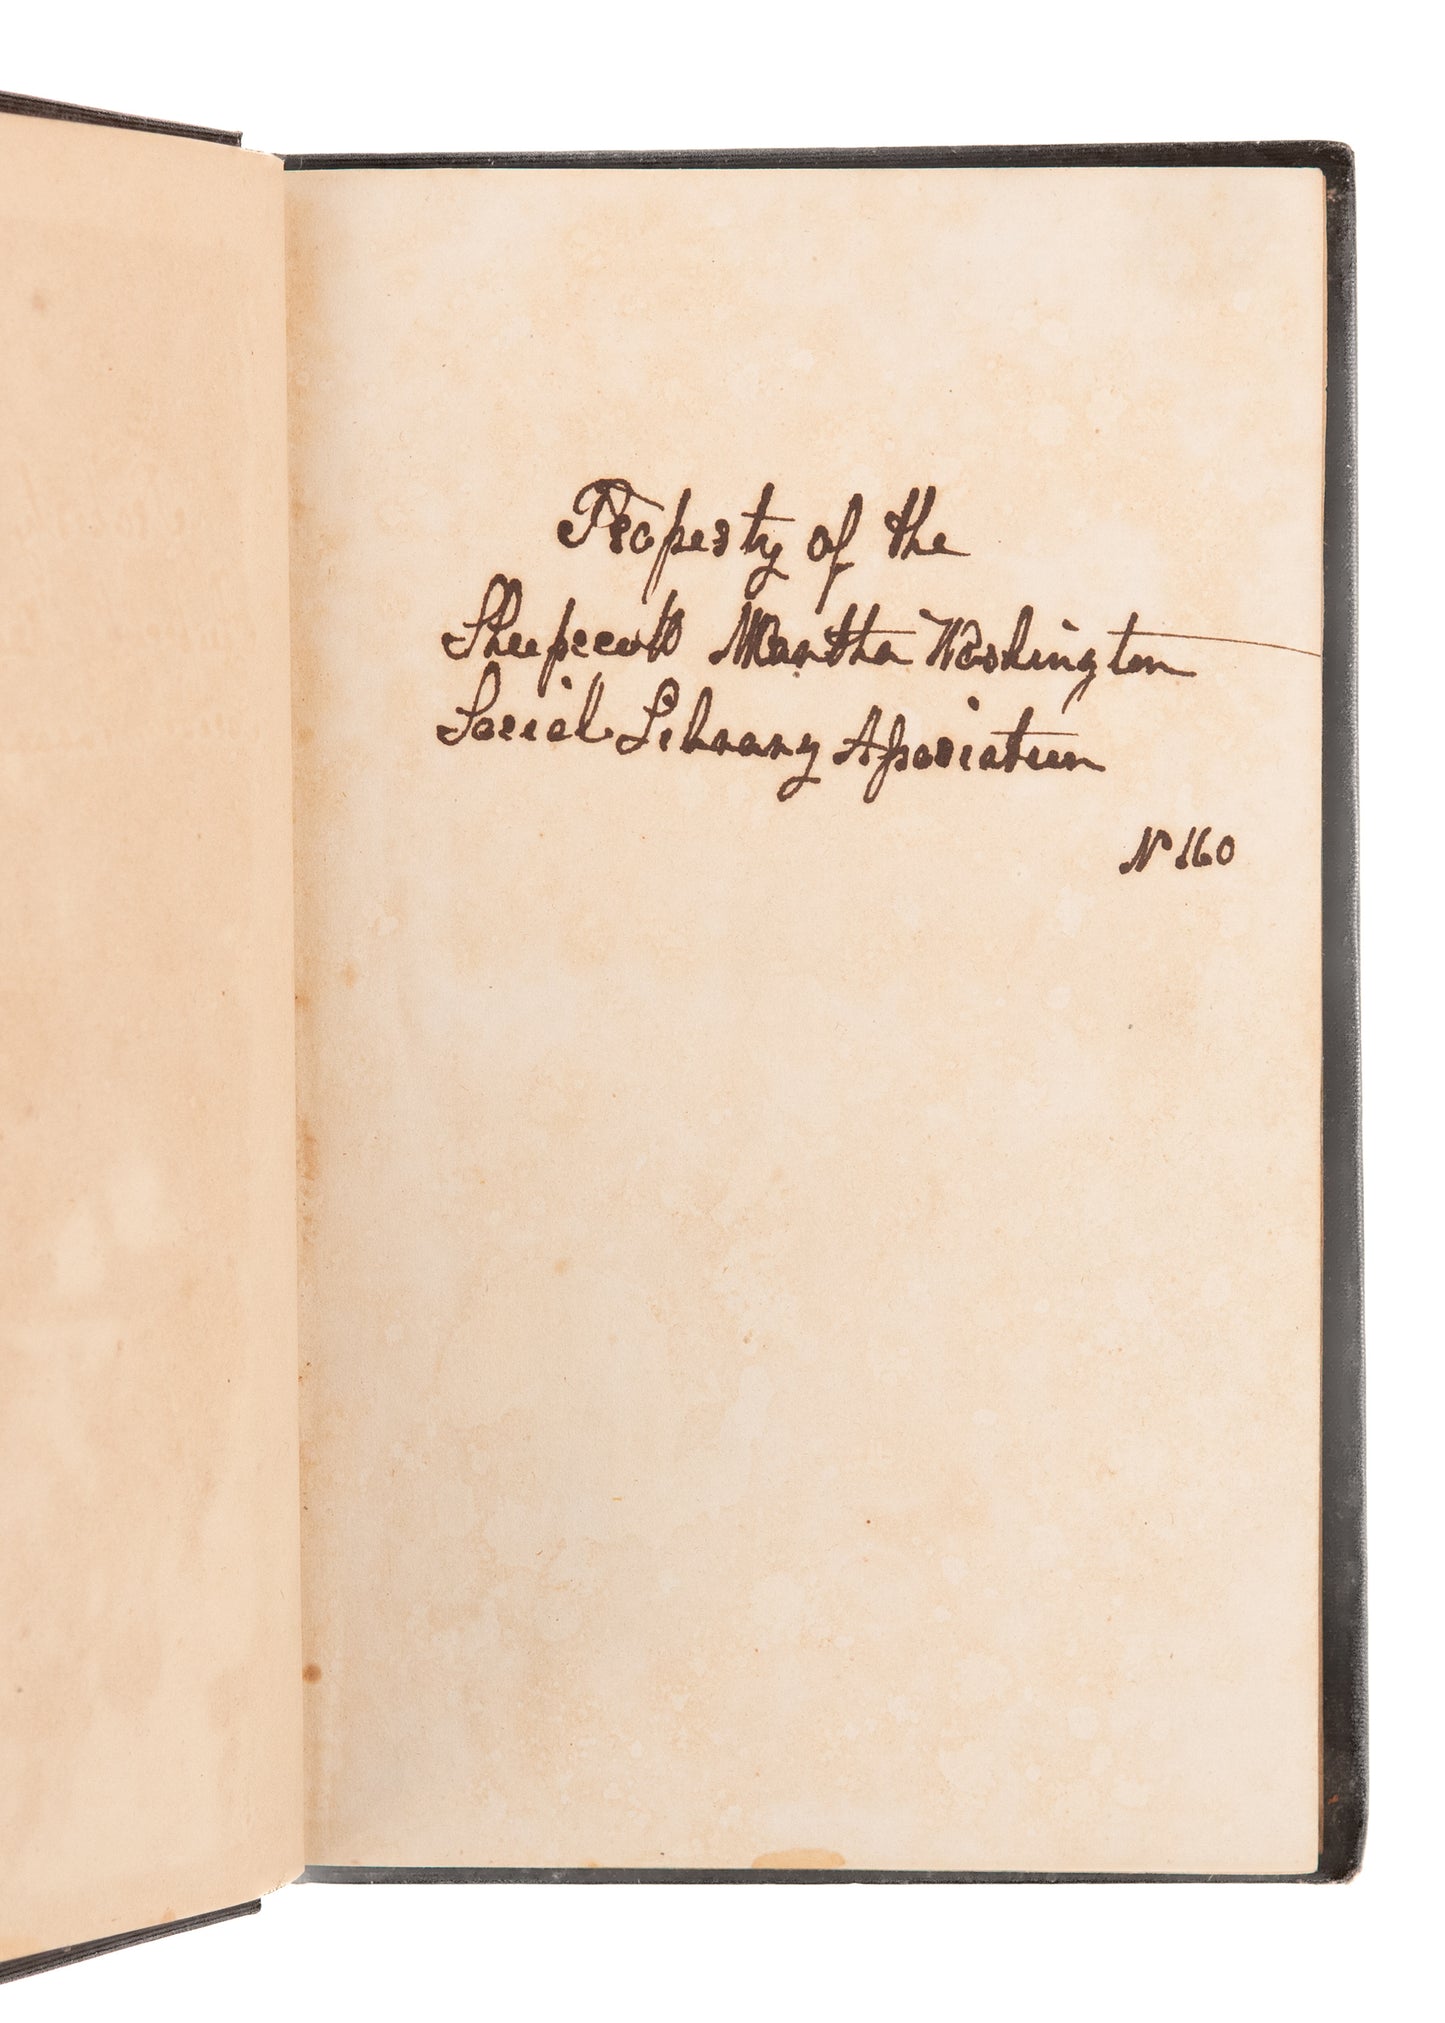 Property of the
Sheepscott Martha Washington
Social Library Association
No 160